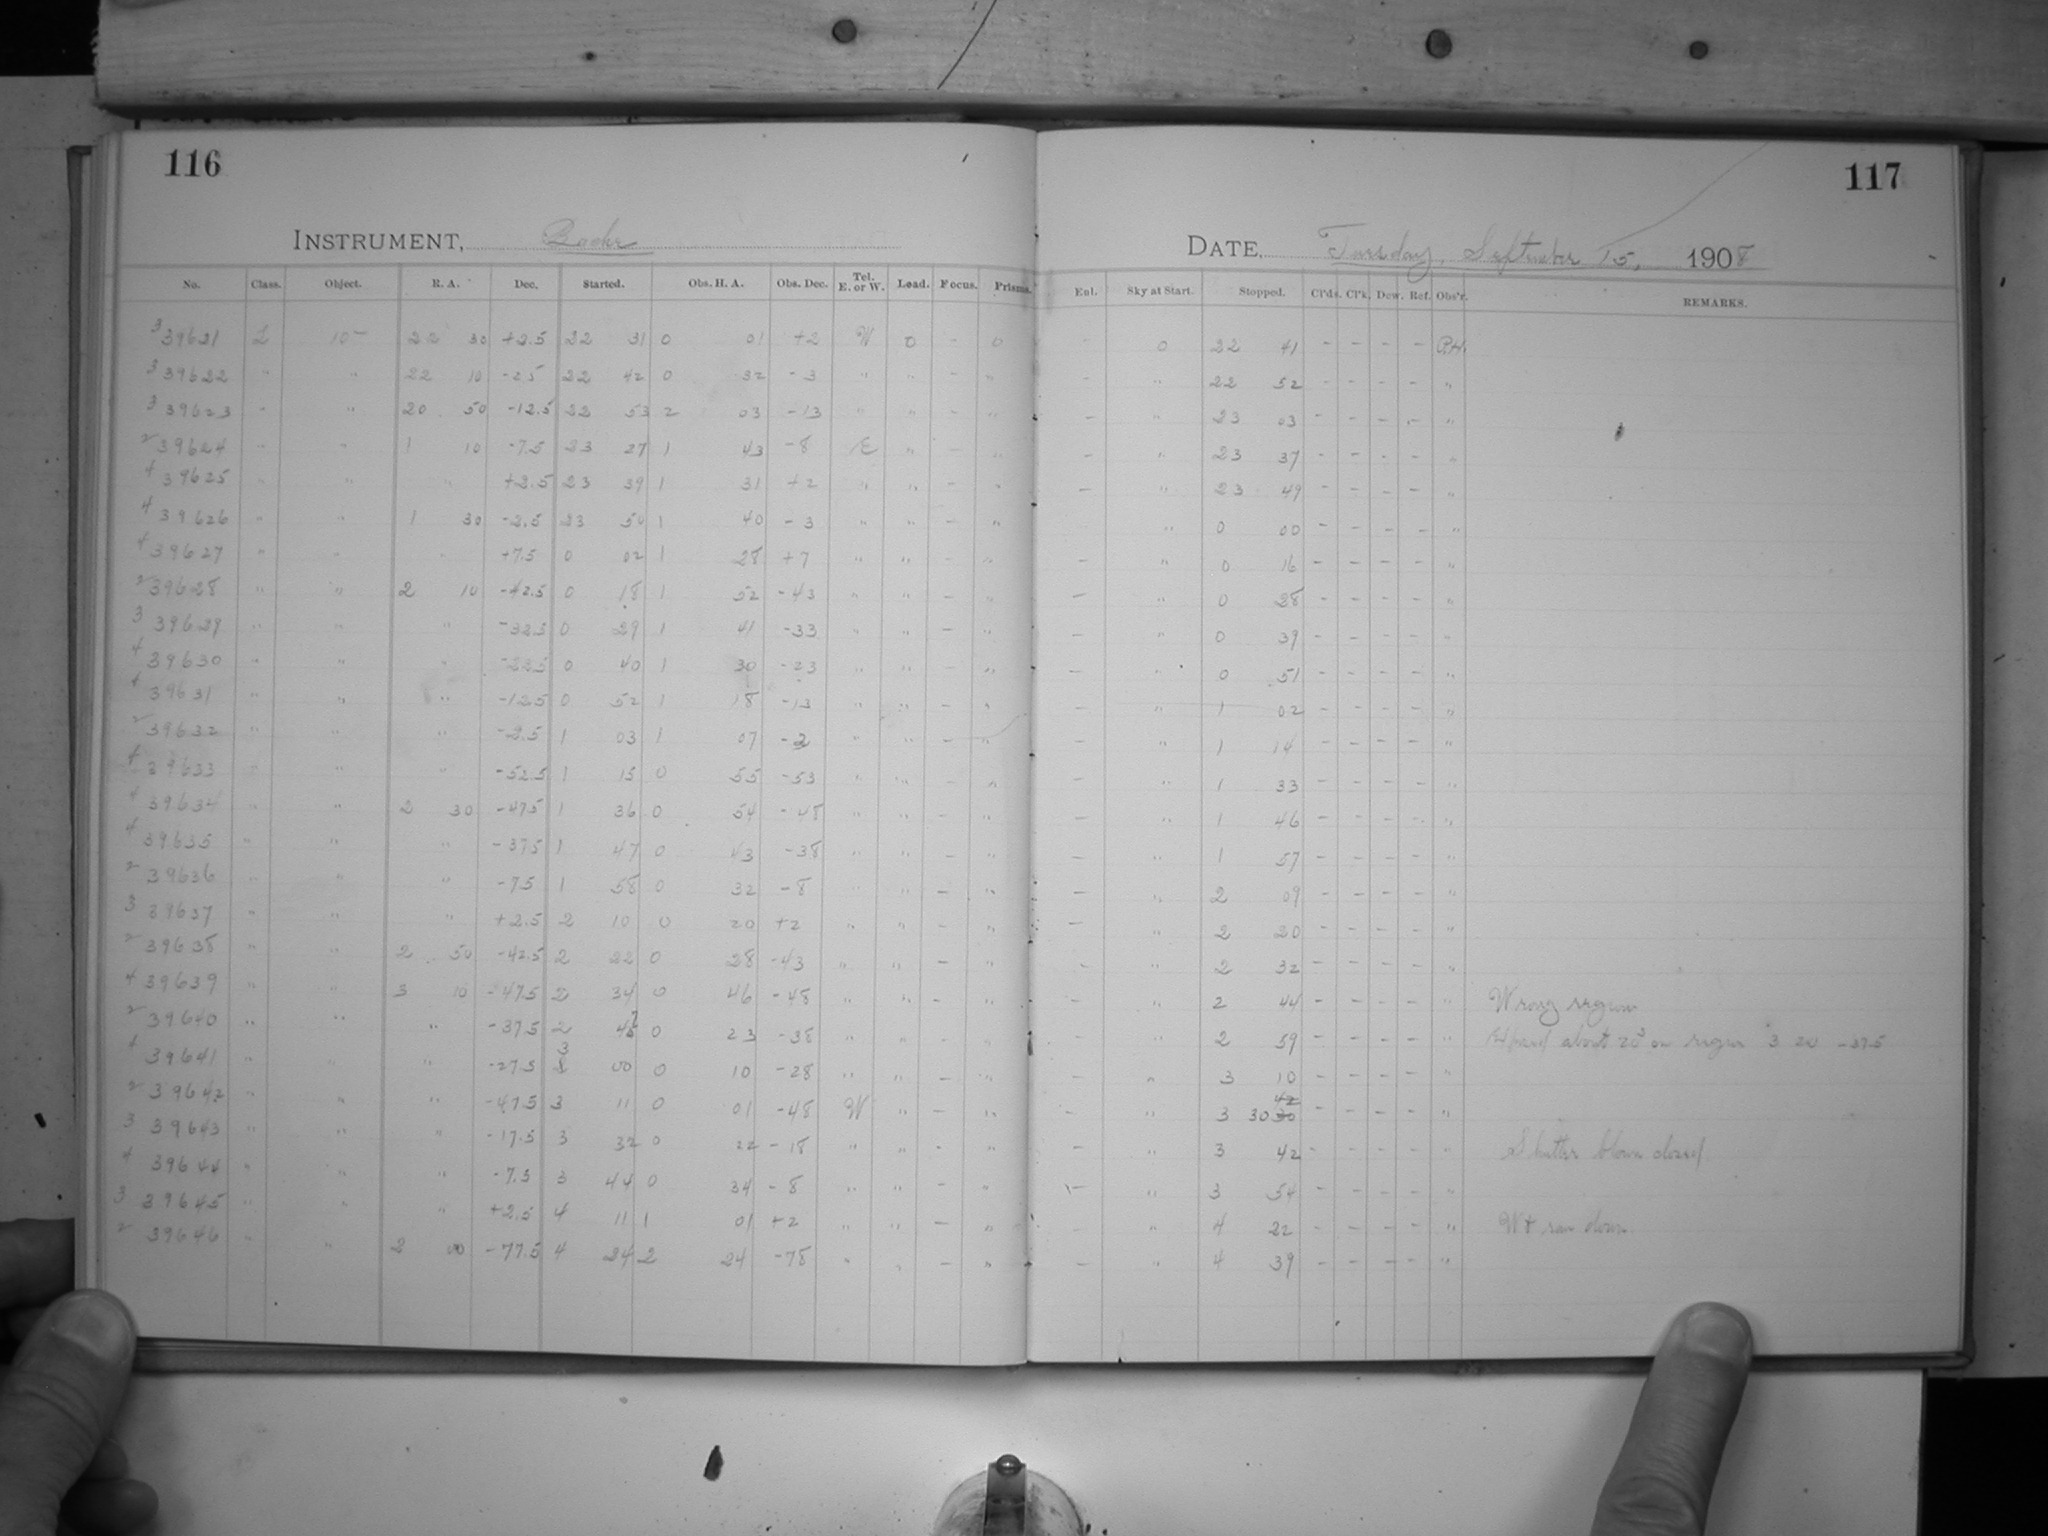 116
117
INSTRUMENT, Bache
DATE, Tuesday, September 15, 1908
No. Class. Object. R. A. Dec. Started. Obs. H. A. Obs. Dec. Tel. E. or W. Load. Focus. Prisms. Eul. Sky at Start. Stopped. Cl'ds. Cl'k. Dew. Ref. Obs'r. REMARKS.
3 39621 L 10 22 30 +2.5 22 31 0 01 +2 W 0 - 0 - 0 22 41 - - - - R.H.
3 39622 " " 22 10 -2.5 22 42 0 32 -3 " " - " - " 22 52 - - - - "
3 39623 " " 20 50 -12.5 22 53 2 03 -13 " " - " - " 23 03 - - - - "
2 39624 " " 1 10 -7.5 23 27 1 43 -8 E " - " - " 23 37 - - - - "
4 39625 " " " +2.5 23 39 1 31 +2 " " - " - " 23 49 - - - - "
4 39626 " " 1 30 -2.5 23 50 1 40 -3 " " - " " 0 00 - - - - "
4 39627 " " " +7.5 0 02 1 28 +7 " " - " - " 0 16 - - - - "
2 39628 " " 2 10 -42.5 0 18 1 52 -43 " " - " - " 0 28 - - - - "
3 39629 " " " -32.5 0 29 1 41 -33 " " - " - " 0 39 - - - - "
4 39630 " " " -22.5 0 40 1 30 -23 " " - " - " 0 51 - - - - "
4 39631 " " " -12.5 0 52 1 18 -13 " " - " - " 1 02 - - - - "
2 39632 " " " -2.5 1 03 1 07 -3 " " - " - " 1 14 - - - - "
4 39633 " " " -52.5 1 15 0 55 -53 " " - " - " 1 33 - - - - "
4 39634 " " 2 30 -47.5 1 36 0 54 -48 " " - " - " 1 46 - - - - "
4 39635 " " " -37.5 1 47 0 43 -38 " " - " - " 1 57 - - - - "
2 39636 " " " -7.5 1 58 0 32 -8 " " - " - " 2 09 - - - - "
3 39637 " " " +2.5 2 10 0 20 +2 " " - " - " 2 20 - - - - "
2 39638 " " 2 50 -42.5 2 22 0 28 -43 " " - " - " 2 32 - - - - "
4 39639 " " 3 10 -47.5 2 34 0 46 -48 " " - " - " 2 44 - - - - " Wrong region
2 39640 " " " -37.5 2 47 0 23 -38 " " - " - " 2 59 - - - - " about 20 on region 3 20 -37.5
4 39641 " " " -27.5 3 00 0 10 -28 " " - " - " 3 10 - - - - "
2 39642 " " " -47.5 3 11 0 01 -48 W " - " - " 3 30 30 42 - - - - "
3 39643 " " " -17.5 3 32 0 22 -18 " " - " - " 3 42 - - - - " Shutter blown closed
4 39644 " " " -7.5 3 44 0 34 -8 " " - " - " 3 54 - - - - "
3 39645 " " " +2.5 4 11 1 01 +2 " " - " " 4 22 - - - - " Wt ran down.
2 39646 " " 2 00 -77.5 4 24 2 24 -78 " " - " - " 4 39 - - - - "